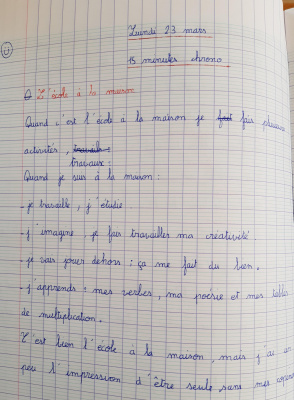 Lundi 23 mars
15 minutes chrono
L'école à la maison
Quand c'est l'école à la maison je fais plusieurs
activités, travails :
travaux :
Quand je suis à la maison :
- je travaille, j'étudie.
- j'imagine, je fais travailler ma créativité.
- je vais jouer dehors : ça me fait du bien.
- j'apprends : mes verbes, ma poésie et mes tables
de multiplication.
C'est bien l'école à la maison, mais j'ai un
peu l'impression d'être seule sans mes copines